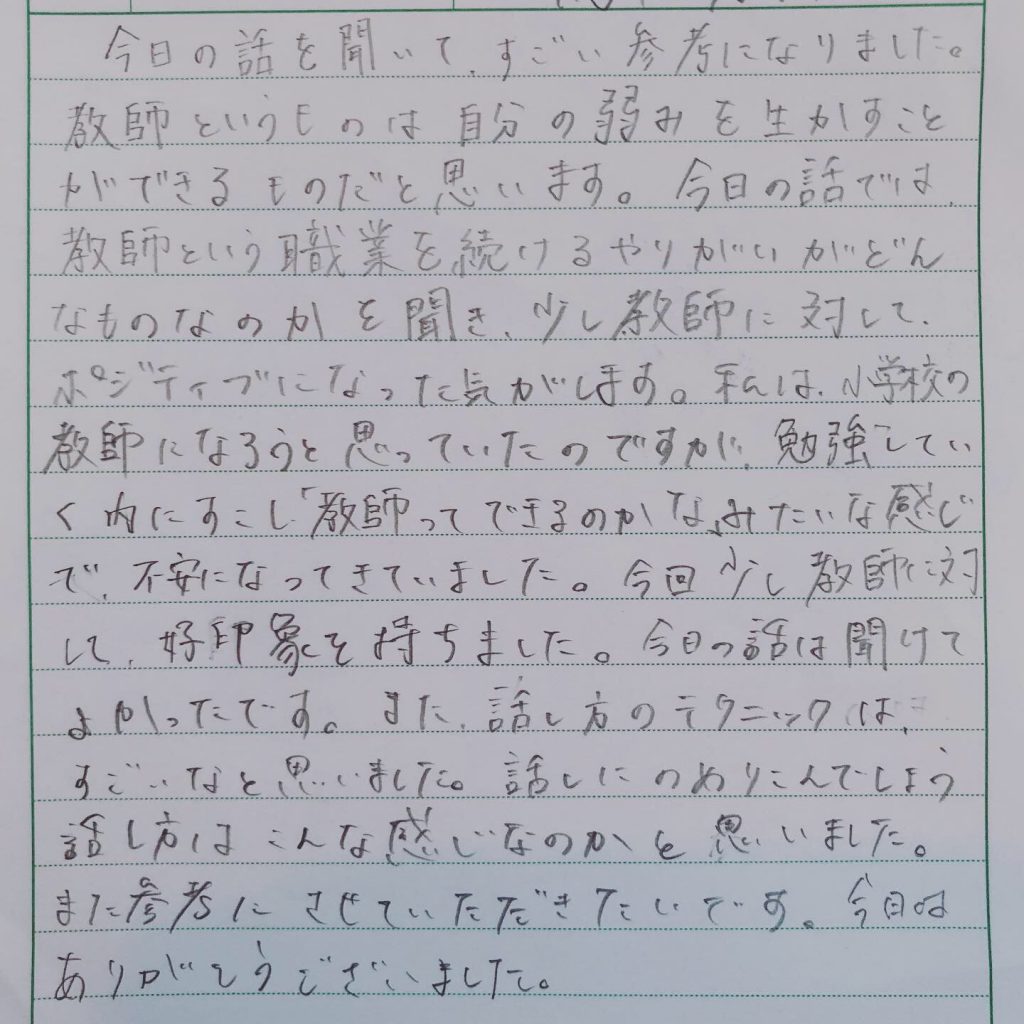 今日の話を聞いて、すごい参考になりました。
教師というものは自分の弱みを生かすこと
ができるものだと思います。今日の話では、
教師という職業を続けるやりがいがどん
なものなのかを聞き、少し教師に対して、
ポジティブになった気がします。私は、小学校の
教師になろうと思っていたのですが、勉強してい
く内にすこし「教師ってできるのかな」みたいな感じ
で、不安になってきていました。今回少し教師に対
して、好印象を持ちました。今日の話は聞けて
よかったです。また、話し方のテクニックは、
すごいなと思いました。話しにのめりこんでしまう
話し方はこんな感じなのかと思いました。
また参考にさせていただきたいです。今日は
ありがとうございました。